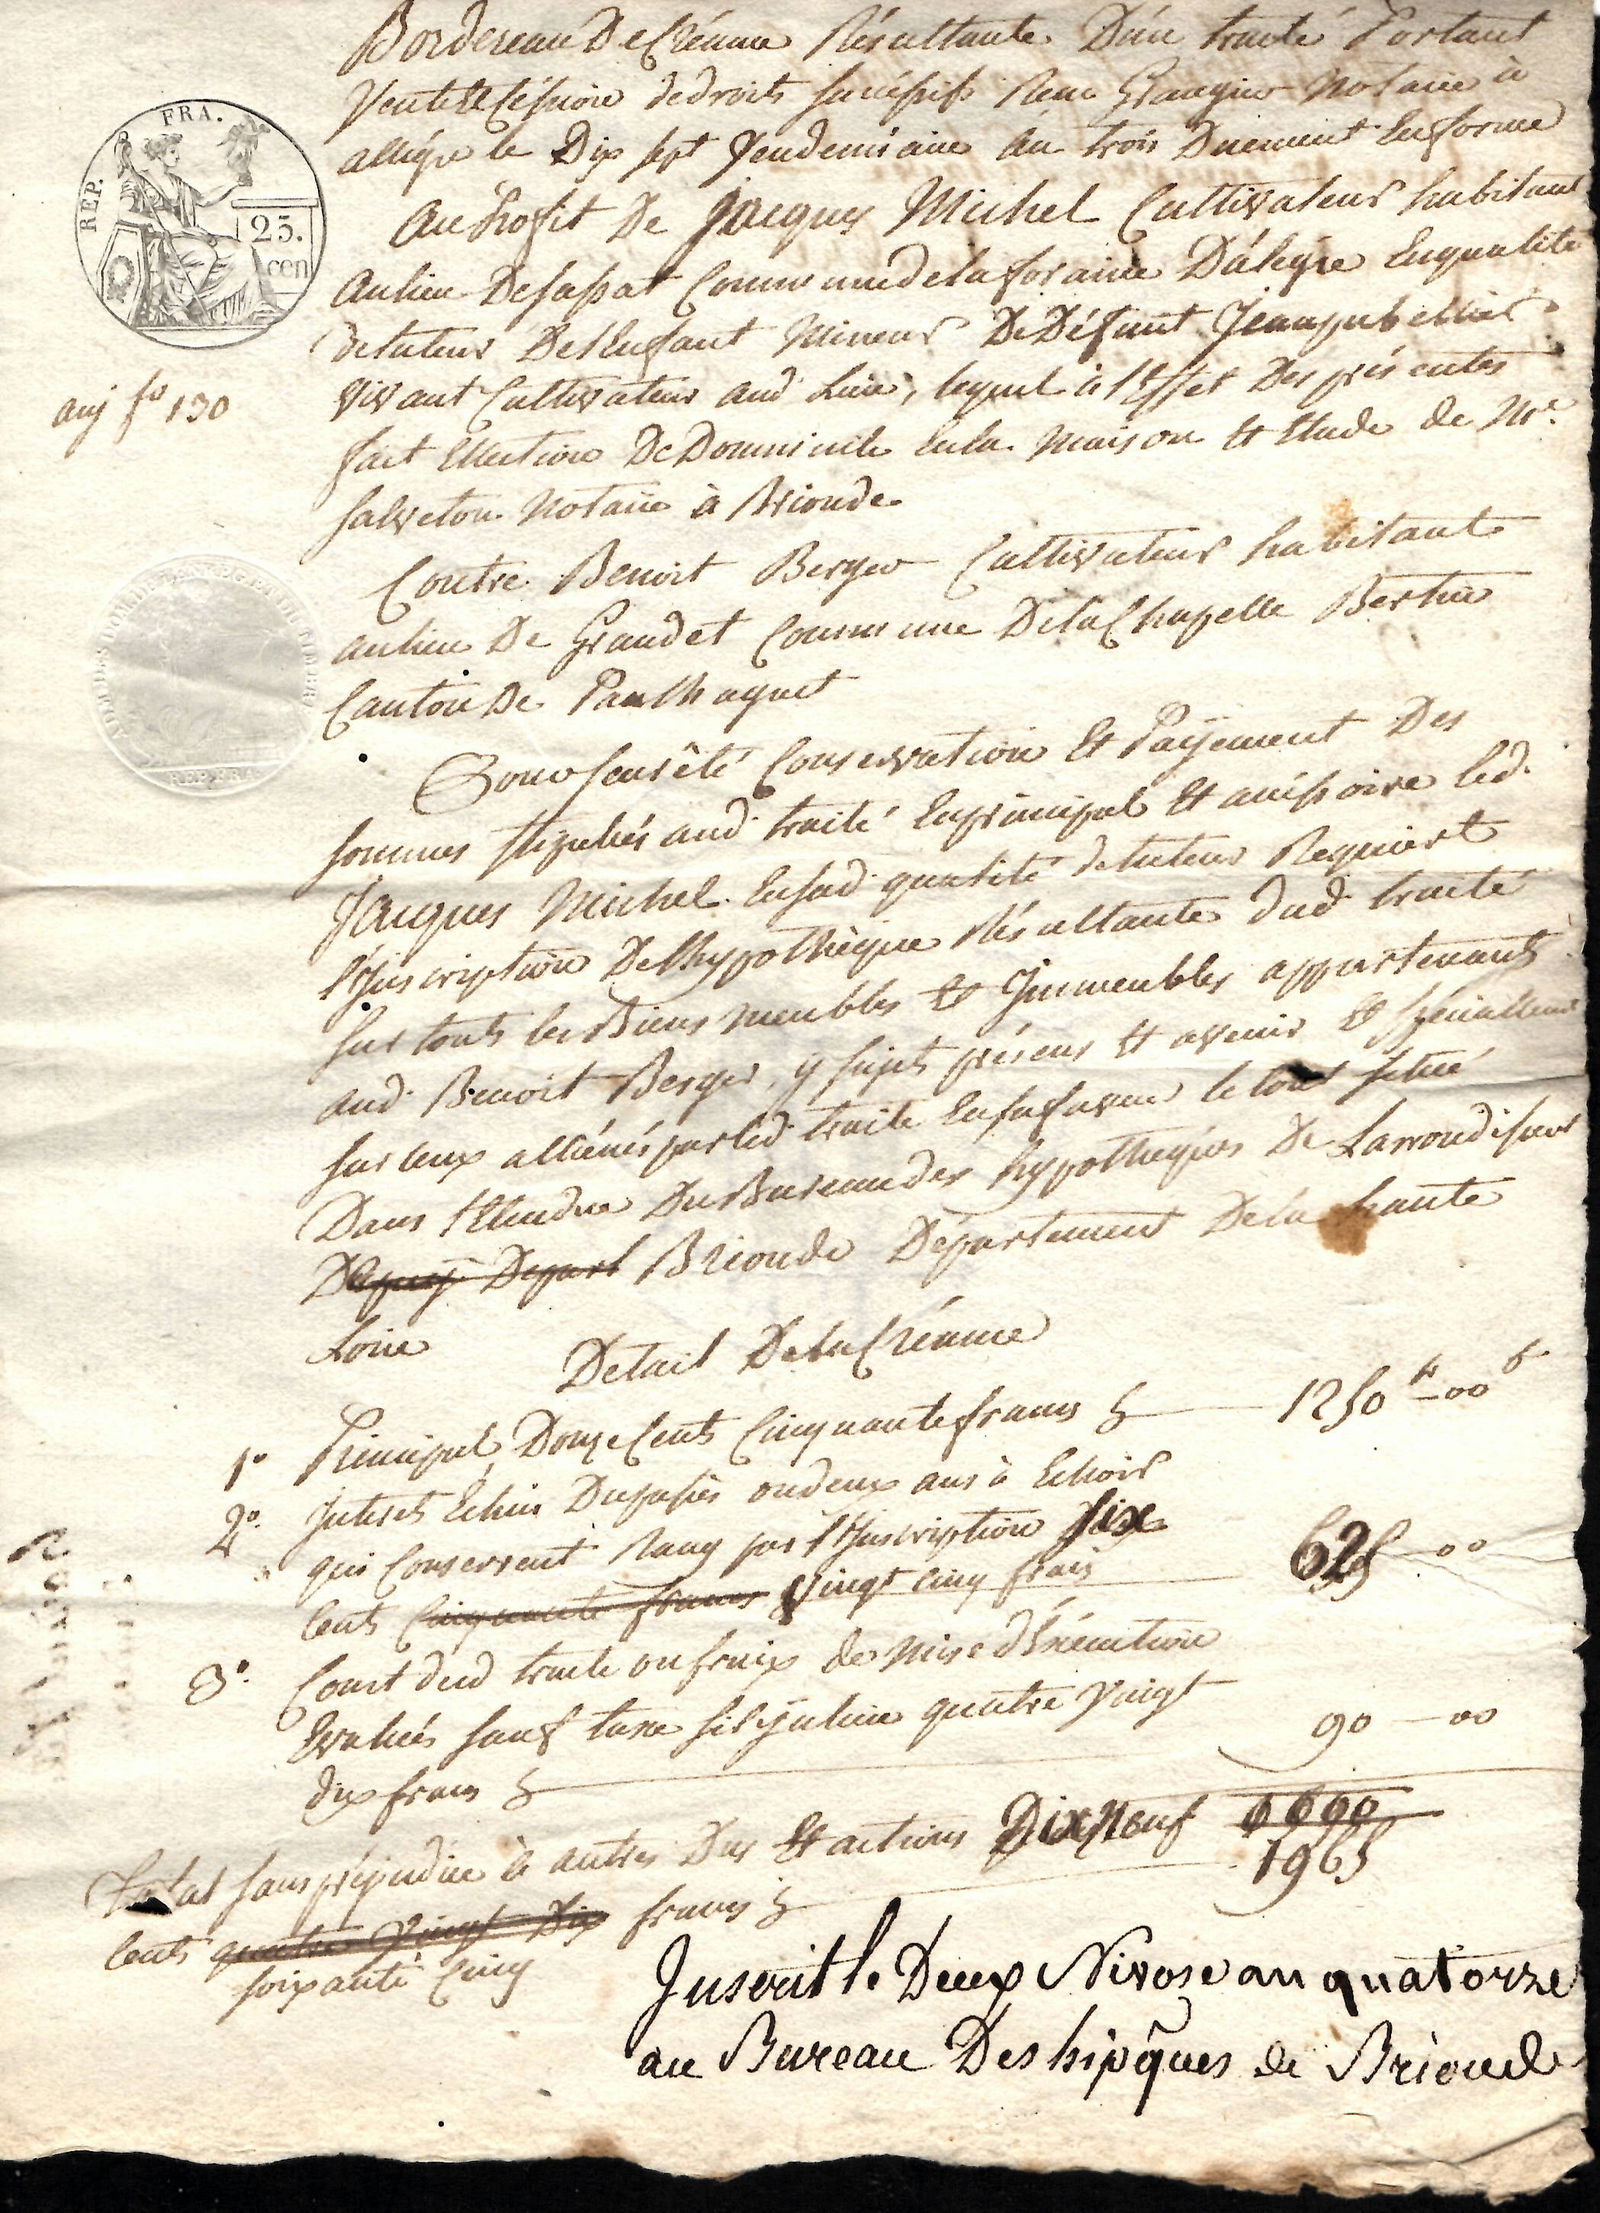 Bordereau De Créance Résultante D'un traité Portant
Vente Et Céssion de droits succéssifs Reçu Grangier Notaire à
allégre le Dix sept Vendemiaire An trois Duement En forme
Au Profit De Jacques Michel Cultivateur habitant
Au lieu De sassat Commune de la foraine D'alégre En qualité
de tuteur De l'Enfant Mineur De Défunt Jean
vivant Cultivateur aud. Lieu, lequel à l'Effet Des présentes
fait Election De Domicile En la Maison Et Etude de Me.
Salveton Notaire à Brioude
Contre Benoit Berger Cultivateur habitant
au lieu De Grandet Commune De la Chapelle Bertin
Canton De Paulhaguet
Pour seurêté Conservation Et Payement Des
sommes stipulées aud. traité En principal Et accéssoire led.
Jacques Michel En sad. qualité de tuteur Requiert
l'Inscription De l'hypothèque Résultante dud. traité
sur touts les Biens meubles Et Immeubles appartenants
aud. Benoit Berger, y sujets présens Et avenir Et spécialement
sur ceux alliénés par led. traité En sa faveur le tout situé
Dans l'Etendue Du Bureau des hypothéques De Larrondissement
Brioude Département De la haute
Loire
Detail De la Créance
1o Principal, Douze Cents Cinquante francs 1250 tt - 00 s
2o. Interets Echus Du passés ou deux ans à Echoir
qui Conservent Rang par l'Inscription six
Cents Cinquante francs Vingt cinq frais 625 - 00
3o. Cout dud. traité ou fraix de Mise d'Exécution
Evalués sauf taxe s'il y echue quatre Vingt
dix francs 90 - 00
Total sans préjudice à autres Dus Et actions Dix Neuf
1965
Cents quatre Vingt Dix francs
soixante Cinq
Inscrit le Deux Nivose an quatorze
au Bureau Des hipques de Brioude
REP. FRA.
25.
cen
auj fo 130
REP. FRA.